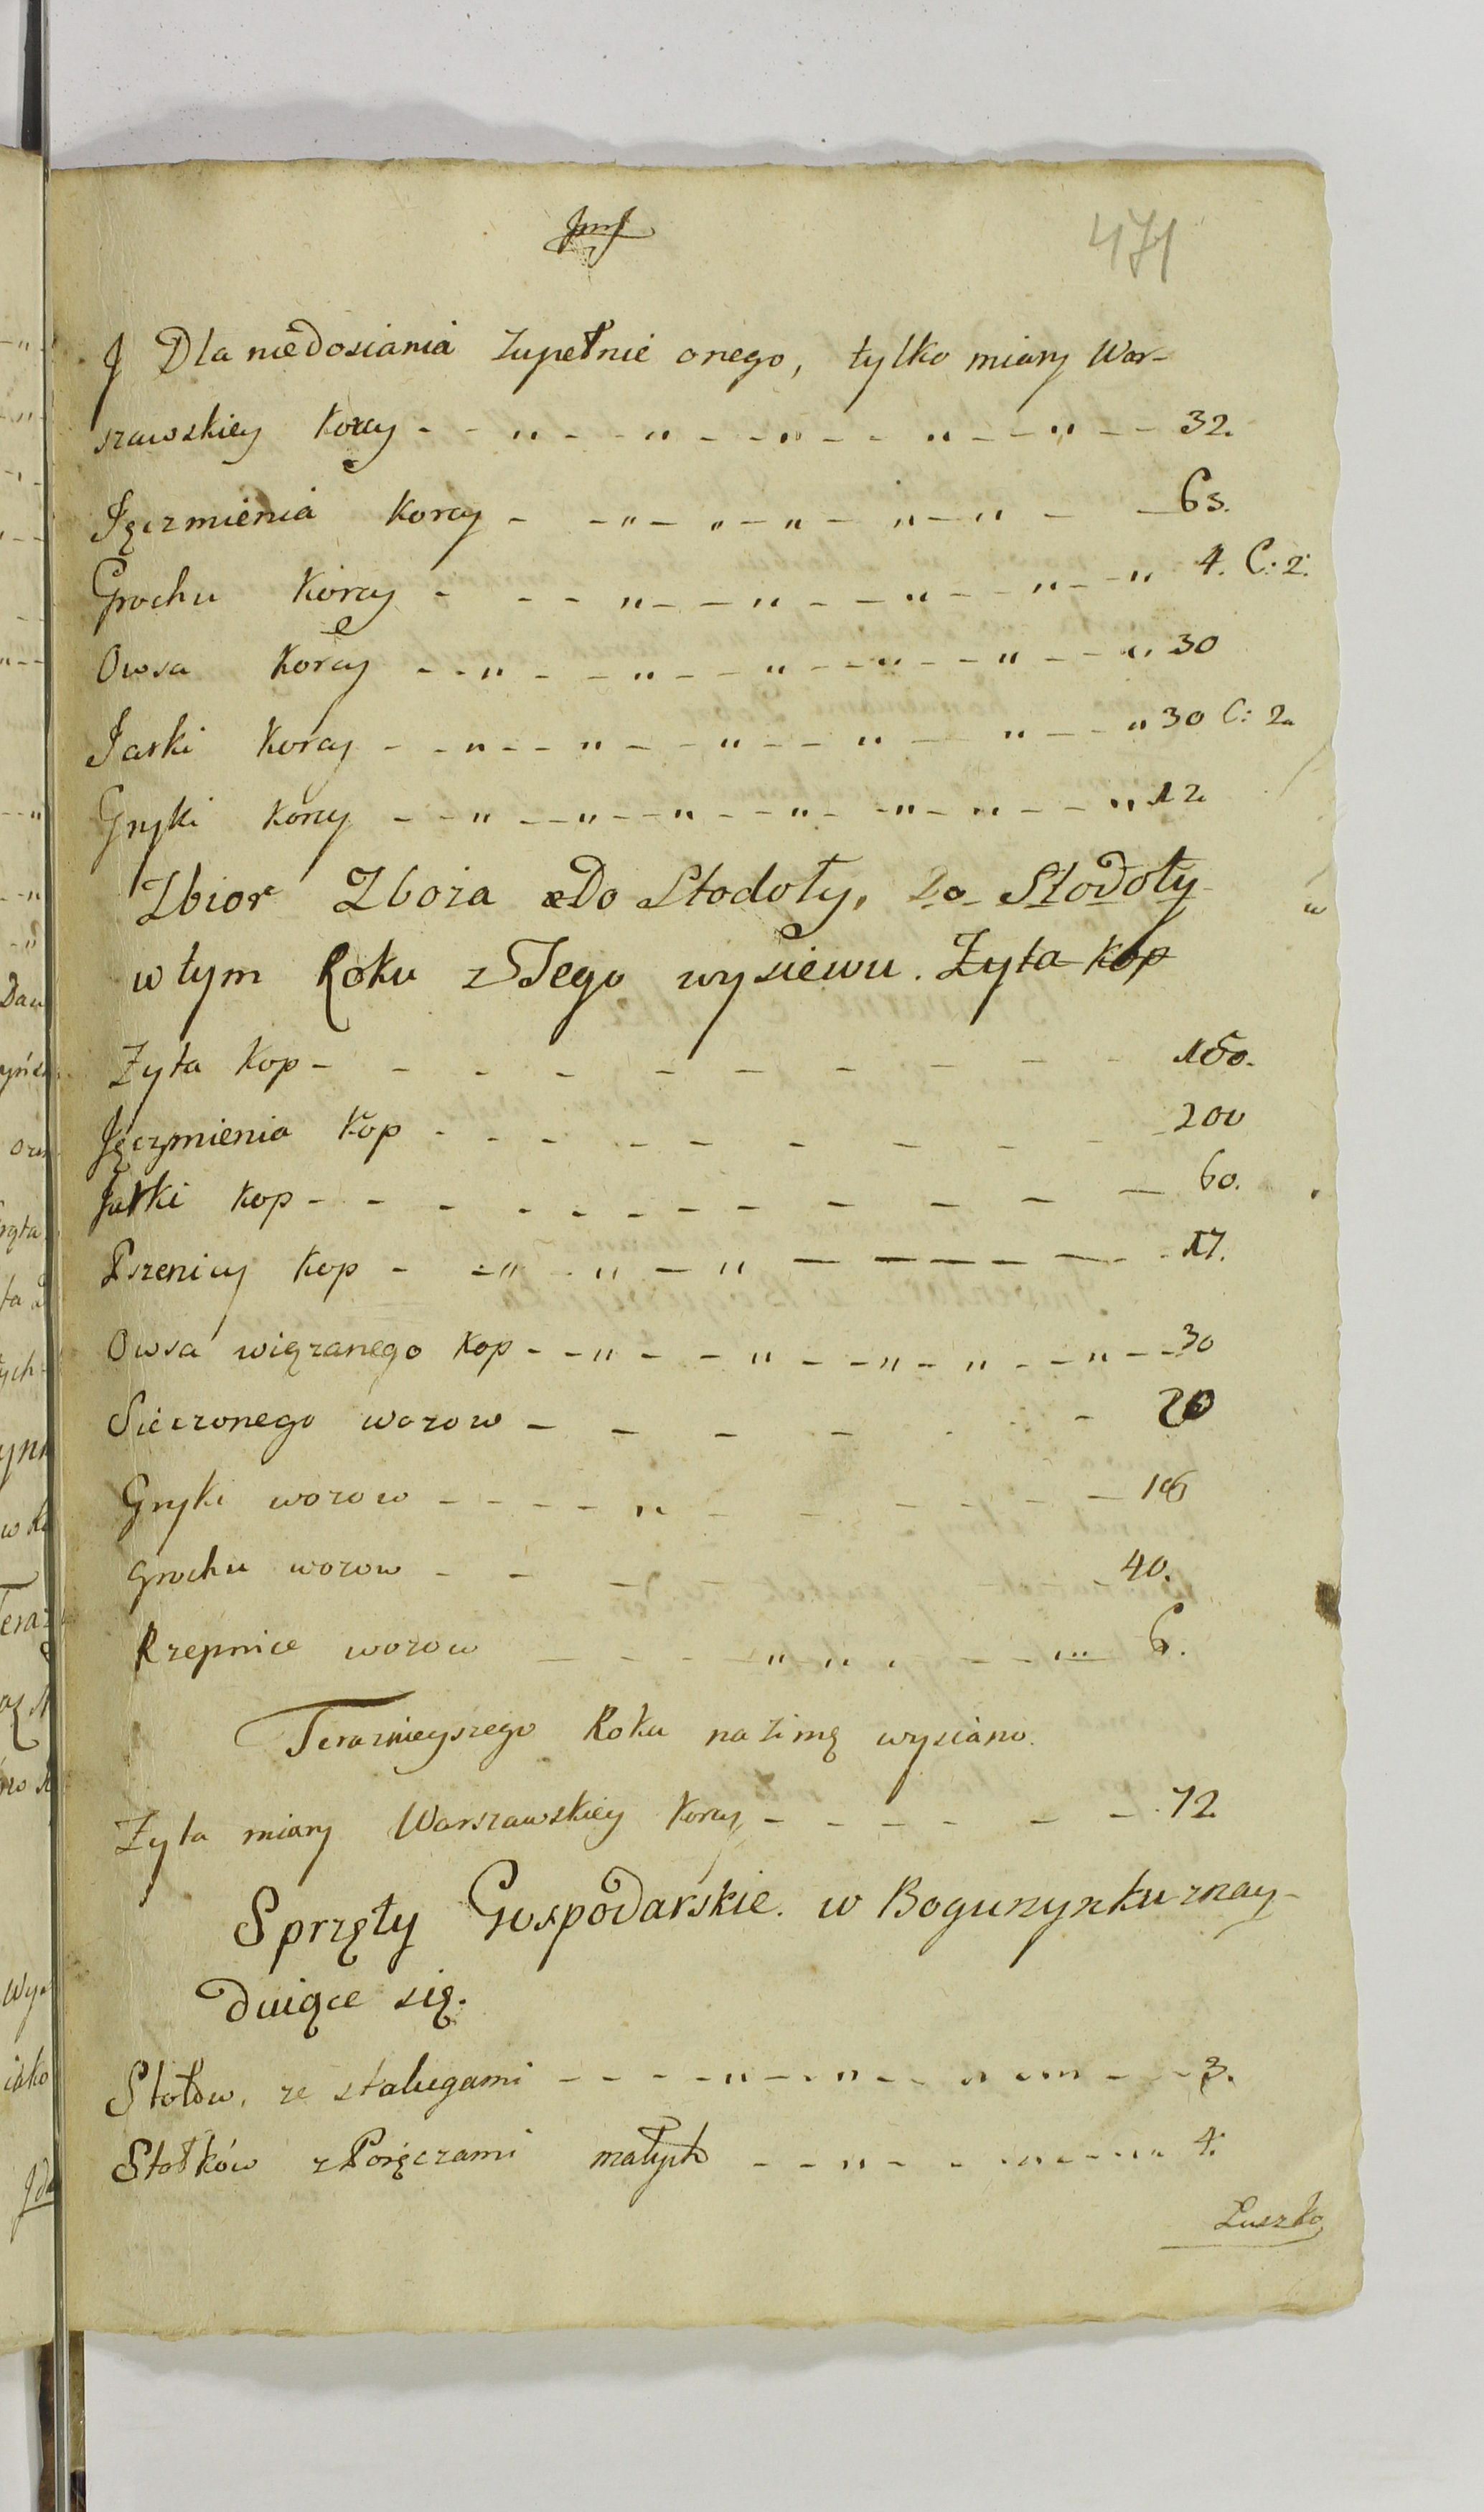 471
J Dla niedosiania zupełnie onego, tylko miary War-
szawskiey Korcy - - " - - " - - " - - " - - " - - 32.
Jęczmienia Korcy - - " - " - " - " - " - - 63.
Grochu Korcy - - - " - - " - - " - - " - - " 4. C: 2.
Owsa Korcy - - " - - " - - " - - " - - " - - " 30
Jarki Korcy - - " - - " - - " - - " - " - - " 30 C: 2.
Gryki Korcy - - " - - " - - " - - " - - " - " - - " 12
Zbior Zboza Do Stodoły, Do Stodoły
w tym Roku z Tego wysiewu. Zyta kop
Zyta Kop - - - - - - - - - 150.
Jęczmienia Kop - - - - - - - - - 200
Jarki Kop - - - - - - - - - - - 60.
Pszenicy Kop - - " - " - " - - - - - - - 17.
Owsa wiązanego Kop - - " - - " - - " - " - - " - - 30
Sieczonego wozow - - - - - - 20
Gryki wozow - - - - - " - - - - - - 16
Grochu wozow - - - - - 40.
Rzepnice wozow - - - - " " - - - " - 6.
Teraznieyszego Roku na zimę wysiano.
Zyta miary Warszawskiey Korcy - - - - - - 72
Sprzęty Gospodarskie. w Boguzynku znay-
duiące się.
Stołow, ze stalugami - - - - " - - " - - " - - - 3.
Stołków z Poręczami małych - - " - - " - - " 4.
Łuszko